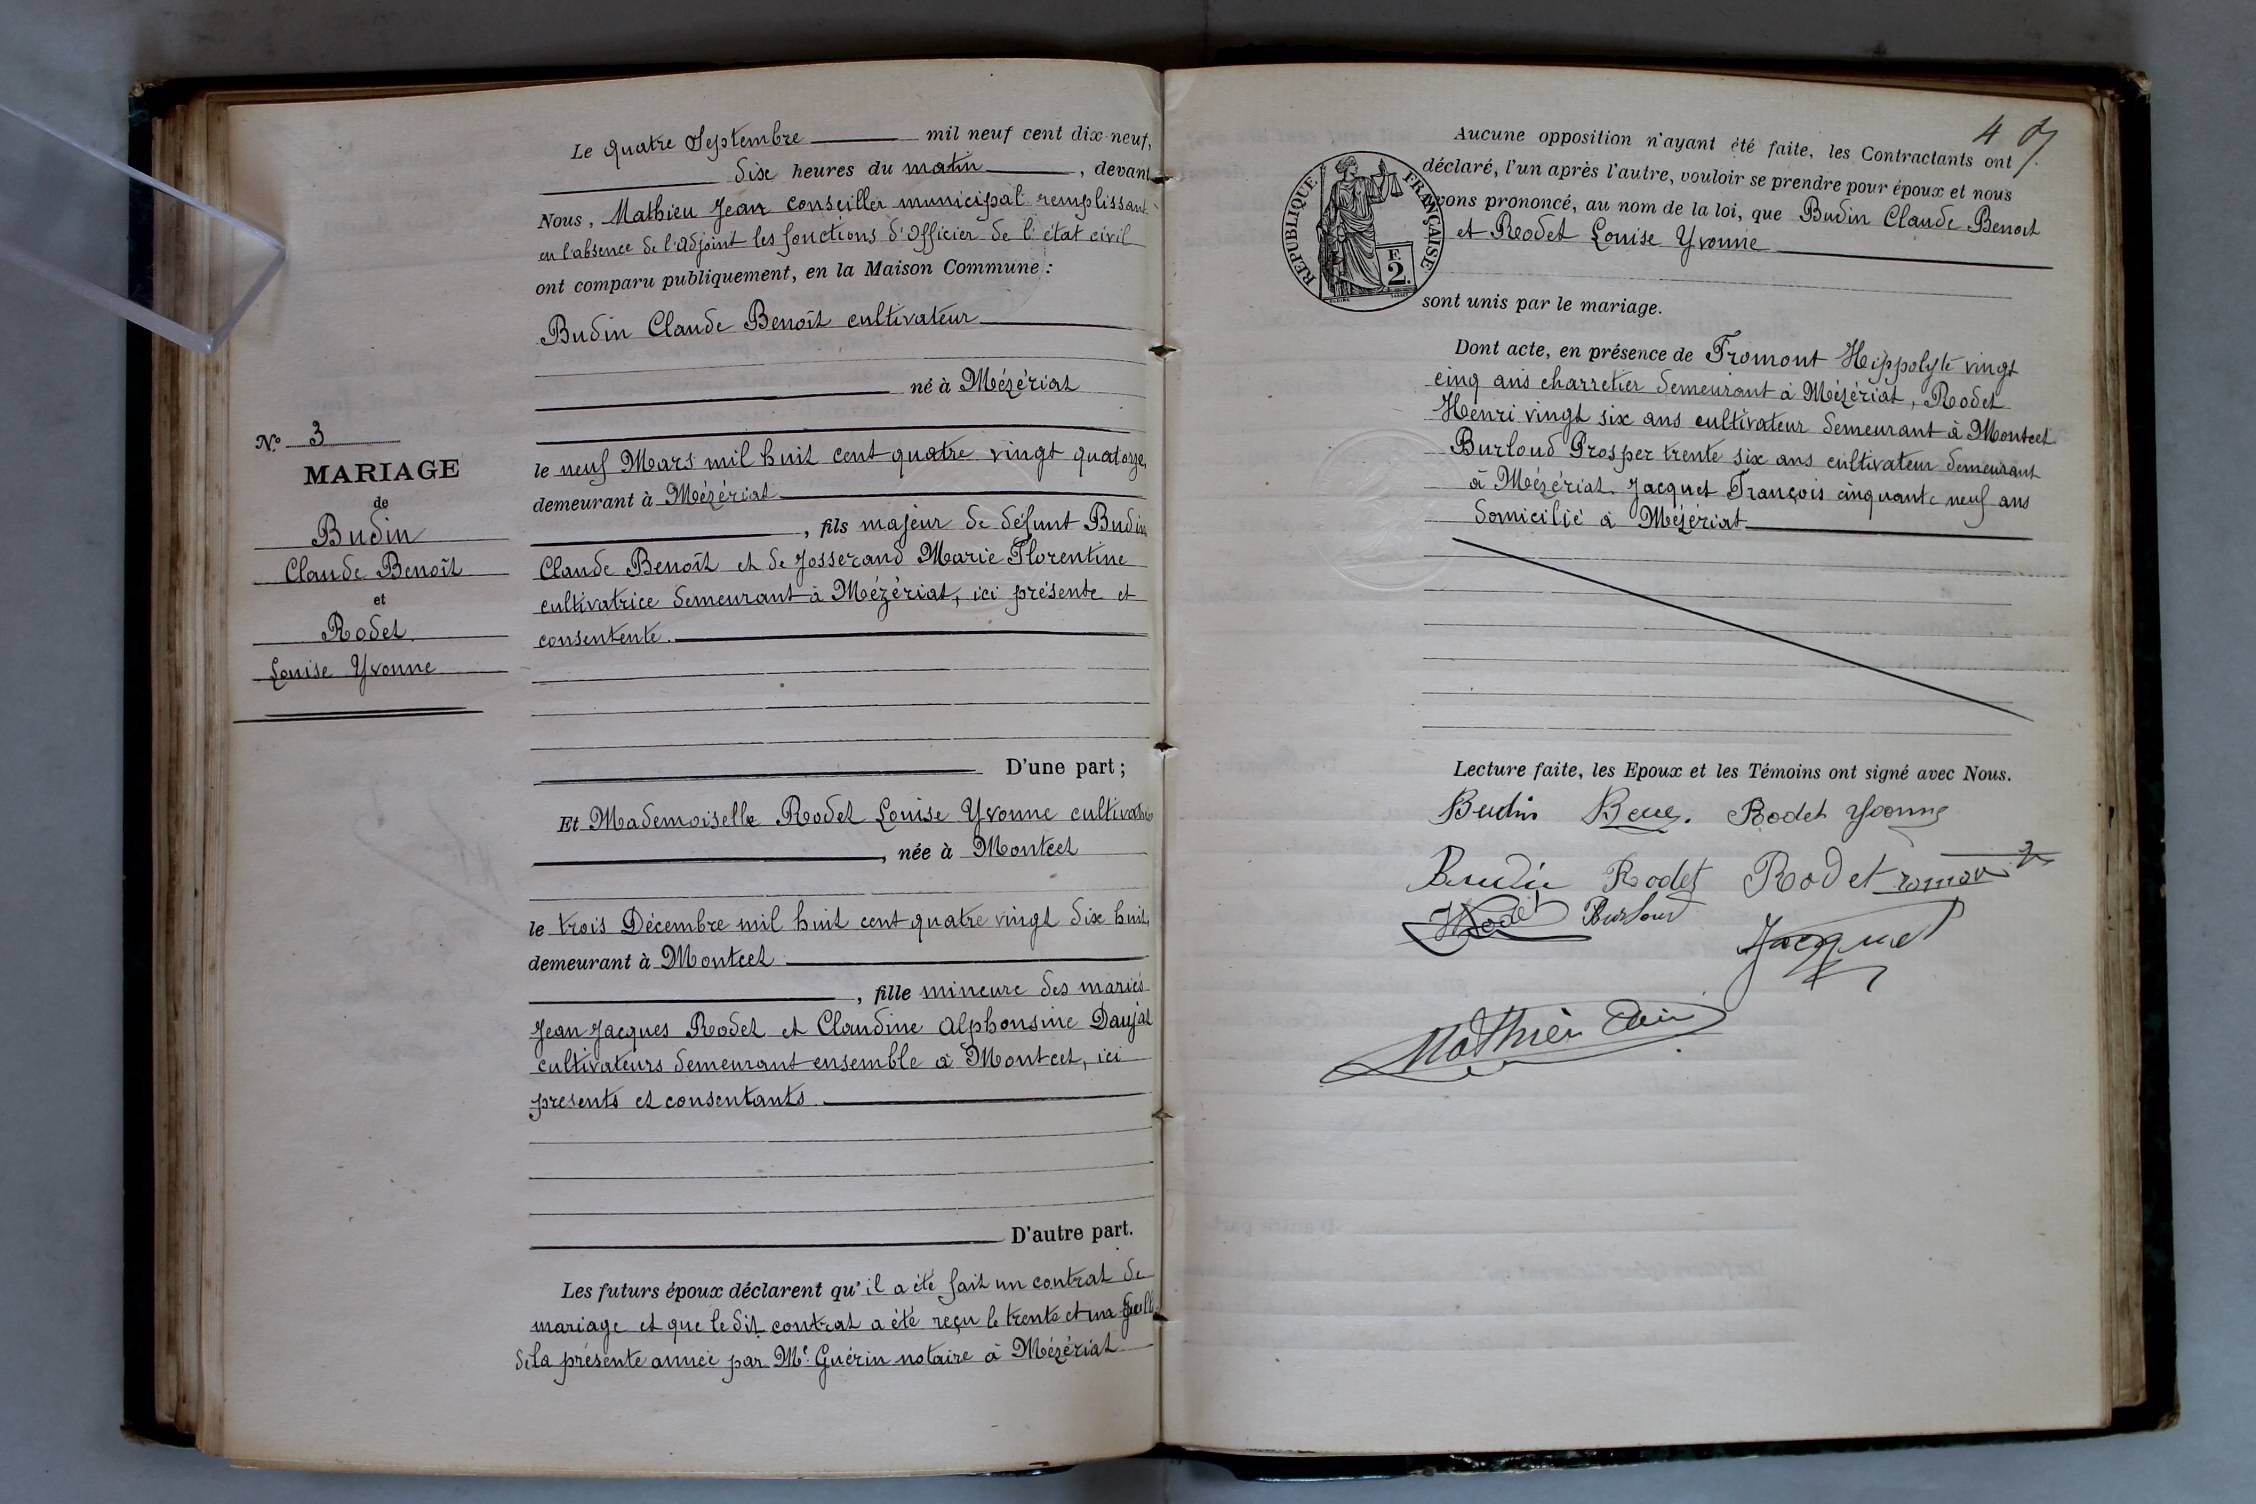 N.º 3
MARIAGE
de
Budin
Claude Benoît
et
Rodet
Louise Yvonne
Le quatre Septembre mil neuf cent dix-neuf,
dix heures du matin, devant
Nous, Mathieu Jean conseiller municipal remplissant
en l'absence de l'adjoint les fonctions d'Officier de l'état civil
ont comparu publiquement, en la Maison Commune :
Budin Claude Benoît cultivateur
né à Mézériat
le neuf Mars mil huit cent quatre vingt quatorze,
demeurant à Mézériat
, fils majeur de défunt Budin
Claude Benoît et de Josserand Marie Florentine
cultivatrice demeurant à Mézériat, ici présente et
consentente.
D'une part ;
Et Mademoiselle Rodet Louise Yvonne cultivatrice
, née à Montcet
le trois Décembre mil huit cent quatre vingt dix huit,
demeurant à Montcet
, fille mineure des mariés
Jean Jacques Rodet et Claudine Alphonsine Daujat
cultivateurs demeurant ensemble à Montcet, ici
présents et consentants.
D'autre part.
Les futurs époux déclarent qu'il a été fait un contrat de
mariage et que le dit contrat a été reçu le trente et un
de la présente année par Me. Guérin notaire à Mézériat
4
RÉPUBLIQUE FRANÇAISE
F.
2.
Aucune opposition n'ayant été faite, les Contractants ont
déclaré, l'un après l'autre, vouloir se prendre pour époux et nous
avons prononcé, au nom de la loi, que Budin Claude Benoit
et Rodet Louise Yvonne
sont unis par le mariage.
Dont acte, en présence de Fromont Hippolyte vingt
cinq ans charretier demeurant à Mézériat, Rodet
Henri vingt six ans cultivateur demeurant à Montcet
Burloud Prosper trente six ans cultivateur demeurant
à Mézériat. Jacquet François cinquante neuf ans
domicilié à Mézériat
Lecture faite, les Epoux et les Témoins ont signé avec Nous.
Budin Rodet Yvonne
Budin Rodet Rodet
HRodet Burloud
Jacquet
Mathieu